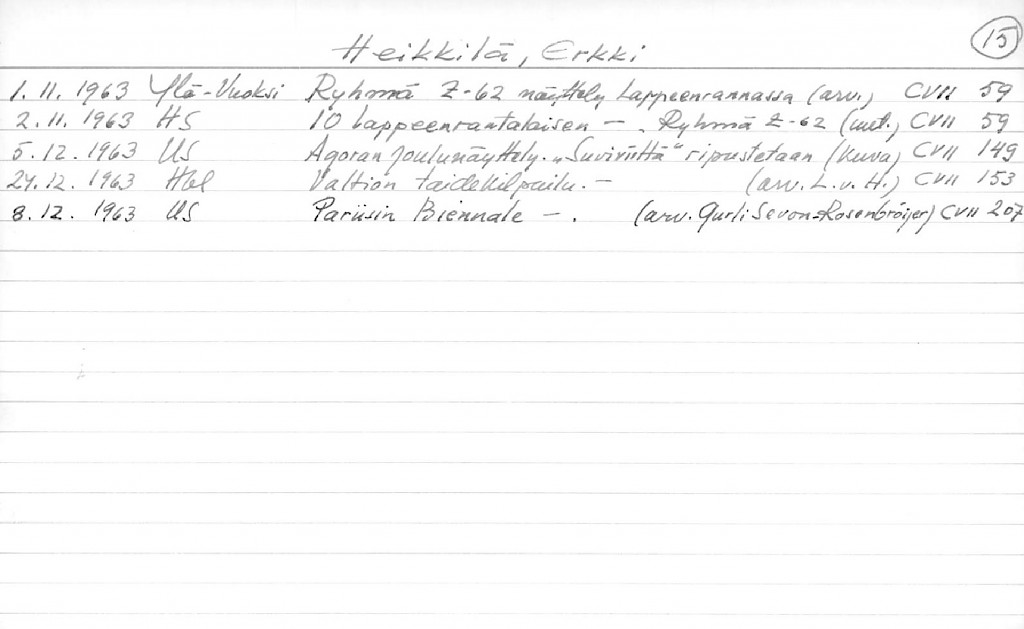 15
Heikkilä, Erkki
1. 11. 1963 Ylä-Vuoksi Ryhmä Z-62 näyttely Lappeenrannassa (arv.) CVII 59
2. 11. 1963 HS 10 Lappeenrantalaisen - . Ryhmä Z-62 (uut.) CVII 59
5. 12. 1963 US Agoran joulunäyttely. „Suviviittä" ripustetaan (kuva) CVII 149
24. 12. 1963 Hbl Valtion taidekilpailu. - (arv. L.v.H.) CVII 153
8. 12. 1963 US Pariisin Biennale - . (arv. Gurli Sevon-Rosenbröijer) CVII 207